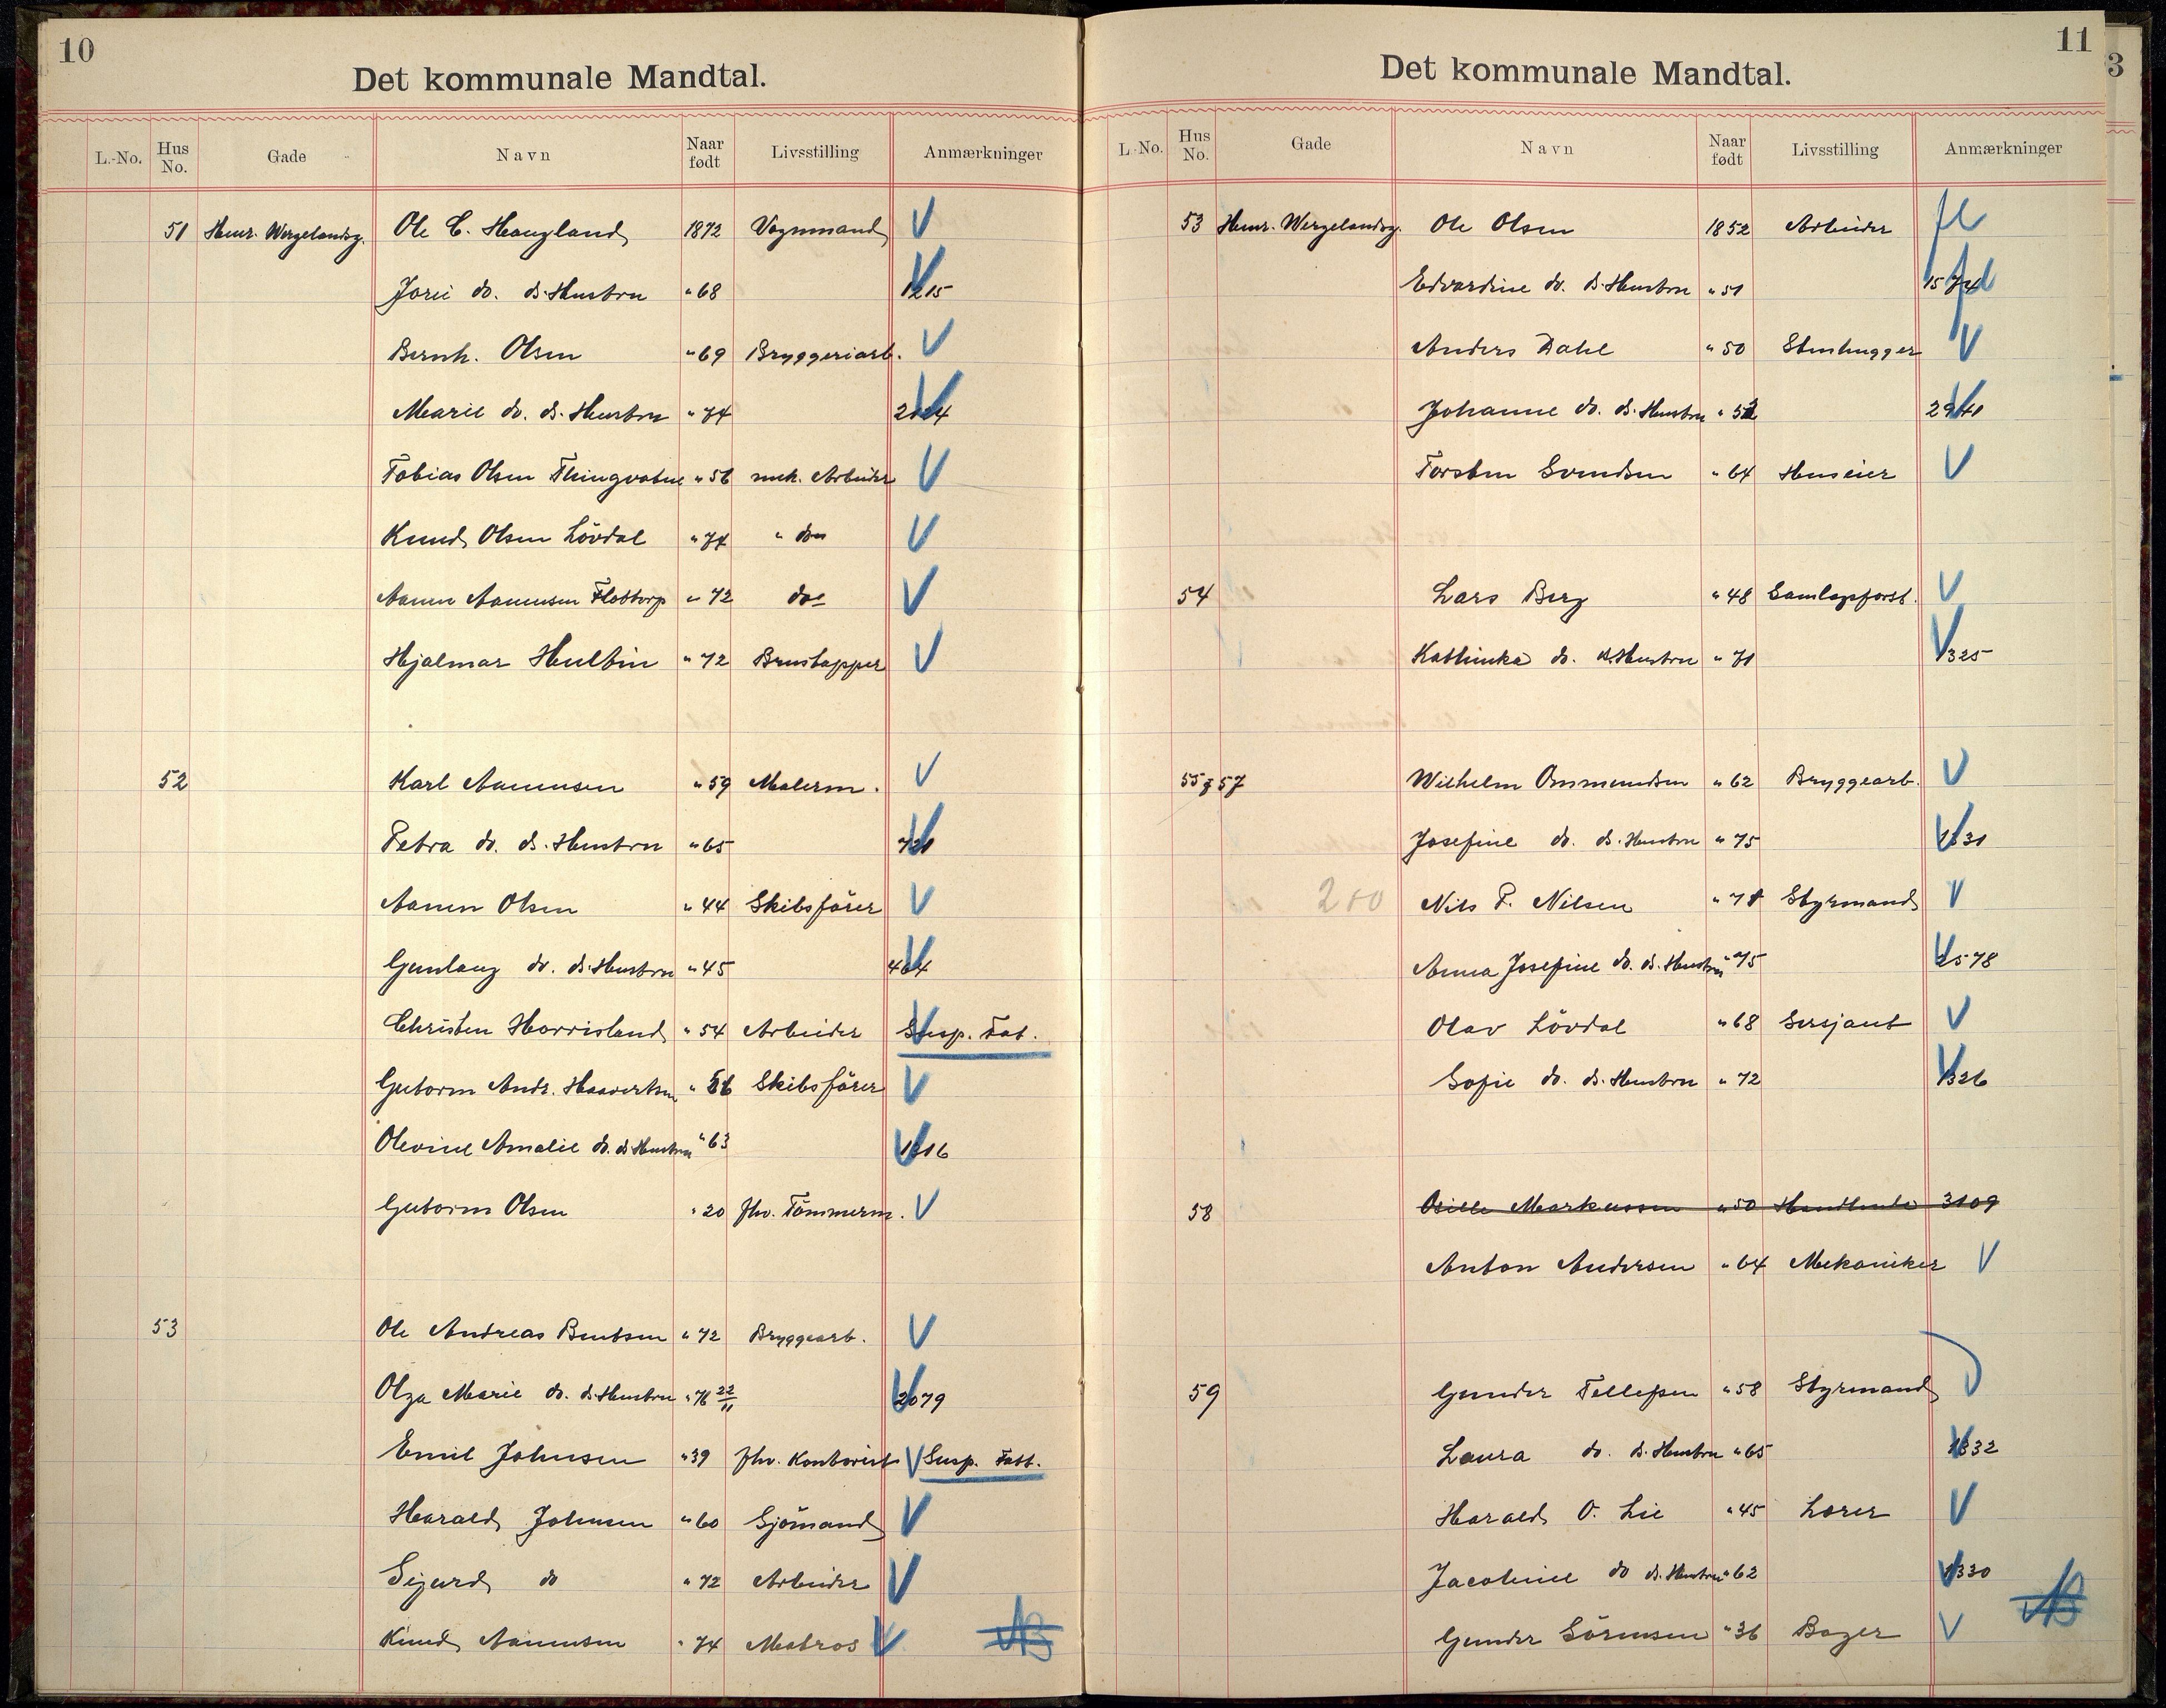 10
Det kommunale Mandtal.
L.-No. Hus No. Gade Navn Naar født Livsstilling Anmærkninger
51 Henr. Wergelandsg. Ole C. Haugland 1872 Vognmand V
Jorii do. d. Hustru " 68 1215
Bernh. Olsen " 69 Bryggeriarb. V
Marie do. d. Hustru " 74
Tobias Olsen Thingvatne " 56 mek. Arbeider V
Knud Olsen Lövdal " 74 " do V
Aanen Aanensen Flottorp " 72 do V
Hjalmar Hultin " 72 Brustapper V
52 Karl Aanensen " 59 Malerm. V
Petra do. d. Hustru " 65 721
Aanen Olsen " 44 Skibsförer V
Gunlaug do. d. Hustru " 45 464
Christen Harrisland " 54 Arbeider Susp. Fat.
Gutorm Andr. Haavertsen " 56 Skibsförer V
Olevine Amalie do. d. Hustru " 63 1316
Gutorm Olsen " 20 fhv. Tömmerm. V
53 Ole Andreas Bentsen " 72 Bryggearb. V
Olga Marie do. d. Hustru " 76 22/11 2079
Emil Johnsen " 39 fhv. Kontorist V Susp. Fatt.
Harald Johnsen " 60 Sjömand V
Sigurd do " 72 Arbeider V
Knud Aanensen " 74 Matros V
11
Det kommunale Mandtal.
L.-No. Hus No. Gade Navn Naar født Livsstilling Anmærkninger
53 Henr. Wergelandsg. Ole Olsen 1852 Arbeider fl
Edvardine do. d. Hustru " 51 1574
Anders Dahl " 50 Stenhugger V
Johanne do. d. Hustru " 52
Torsten Svendsen " 64 Huseier V
54 Lars Berg " 48 Samlagsforst. V
Kathinka do. d. Hustru " 71 1325
55 & 57 Wilhelm Ommundsen " 62 Bryggearb. V
Josefine do. d. Hustru " 75 1331
200 Nils P. Nilsen " 78 Styrmand V
Anna Josefine do. d. Hustru " 75 2578
Olav Lövdal " 68 Sersjant V
Sofie do. d. Hustru " 72 1326
58 Markussen " 50 Handlende 3109
Anton Andersen " 64 Mekaniker V
59 Gunder Tellefsen " 58 Styrmand V
Laura do. d. Hustru " 65 1332
Harald O. Lie " 45 Lærer V
Jacobine do d. Hustru " 62 1330
Gunder Sörensen " 36 Bager V
3